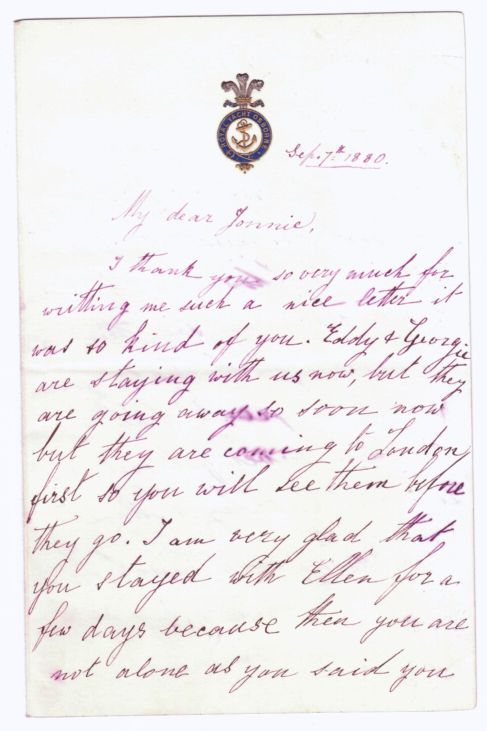 ROYAL YACHT OSBORNE
Sep. 7th 1880.
My dear Jonnie,
I thank you so very much for
writting me such a nice letter it
was so kind of you. Eddy & Georgie
are staying with us now, but they
are going away so soon now
but they are coming to London
first so you will see them before
they go. I am very glad that
you stayed with Ellen for a
few days because then you are
not alone as you said you